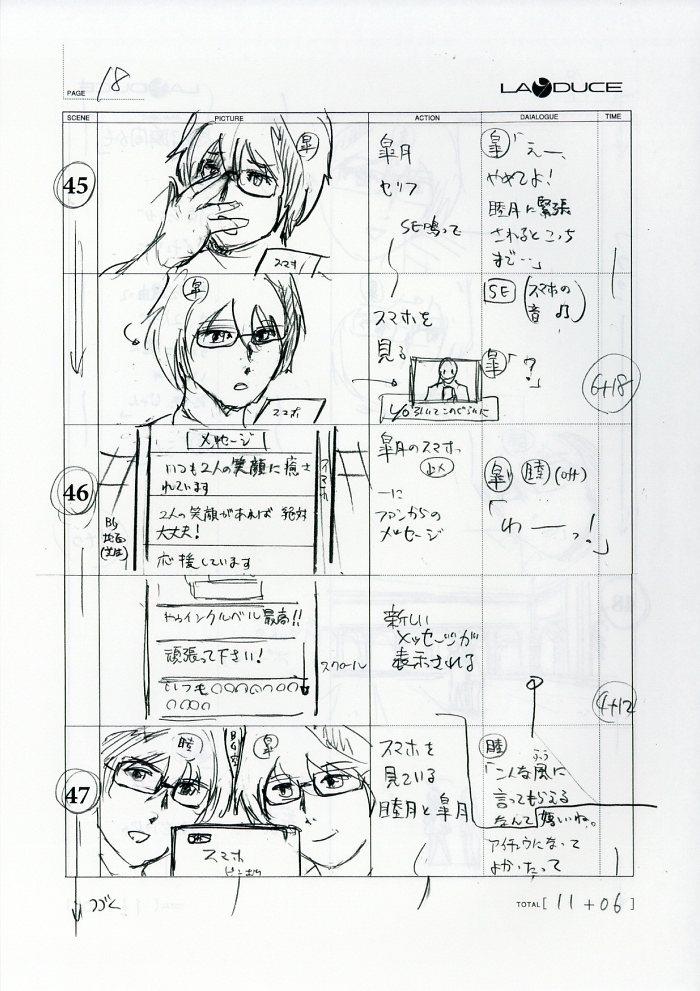 PAGE 18
LA DUCE
SCENE PICTURE ACTION DAIALOGUE TIME
45
皐
スマホ
皐月
セリフ
SE鳴って
皐「えー、
やめてよ!
睦月に緊張
されるとこっち
まで…」
皐
スマホ
スマホを
見る
SE (スマホの
音 ♫)
皐「?」
6+18
46
メッセージ
いつも2人の笑顔に癒さ
れています
2人の笑顔があれば 絶対
大丈夫!
応援しています
皐月のスマホ
ファンからの
メッセージ
皐 睦 (off)
「わーっ!」
トゥインクルベル最高!!
頑張って下さい!
いつも○○○○○○○
○○○○
スクロール
新しい
メッセージが
表示される
4+12
47
睦
皐
スマホ
スマホを
見ている
睦月と皐月
睦
「こんな風に
言ってもらえる
なんて嬉しいね。
アイチュウになって
よかったって
つづく
TOTAL [ 11+06 ]